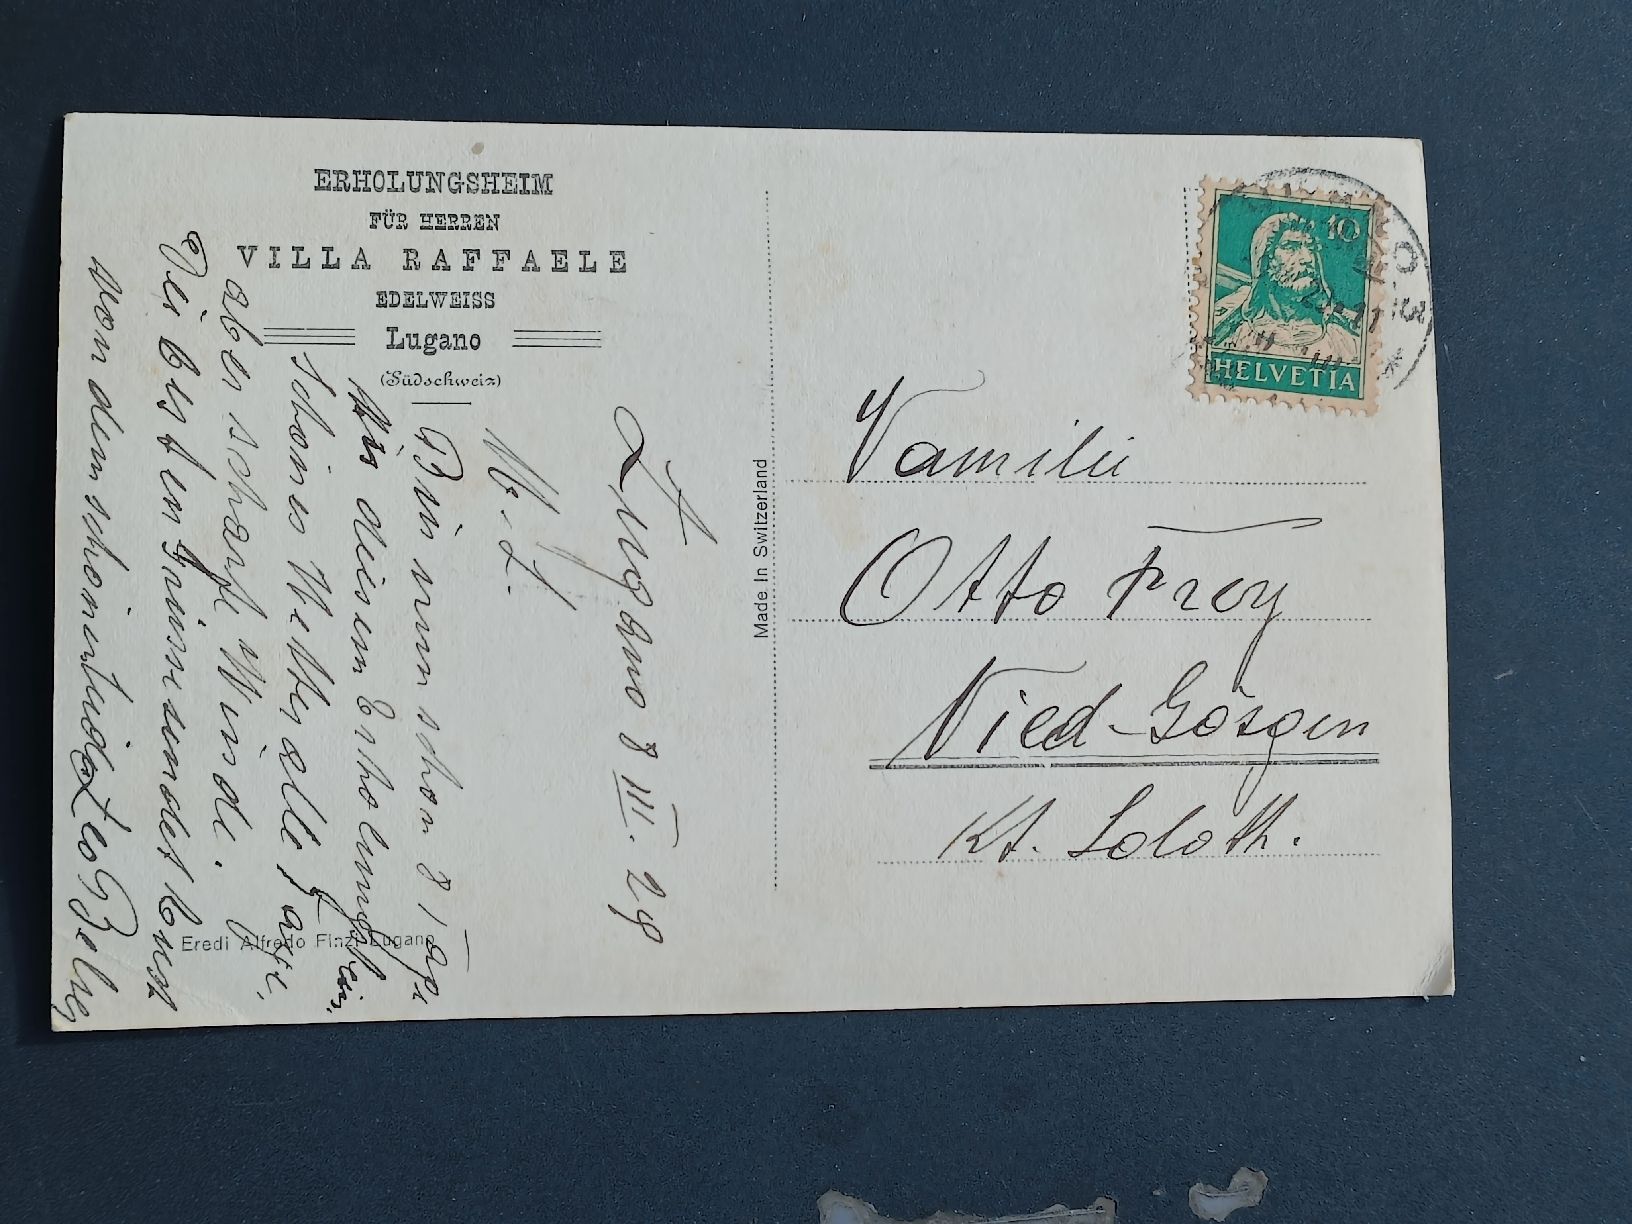 ERHOLUNGSHEIM
FÜR HERREN
VILLA RAFFAELE
EDELWEISS
Lugano
(Südschweiz)
Lugano 8 III. 29
M. L.
Bin nun schon 8 Tage
in diesem Erholungsheim.
Schönes Wetter alle Tage.
aber scharfe Winde.
Die besten Grüsse sendet Euch
von dem schönen Lugano
Made In Switzerland
Eredi Alfredo Finzi Lugano
HELVETIA
10
Vamilie
Otto Frey
Nied-Gösgen
Kt. Soloth.